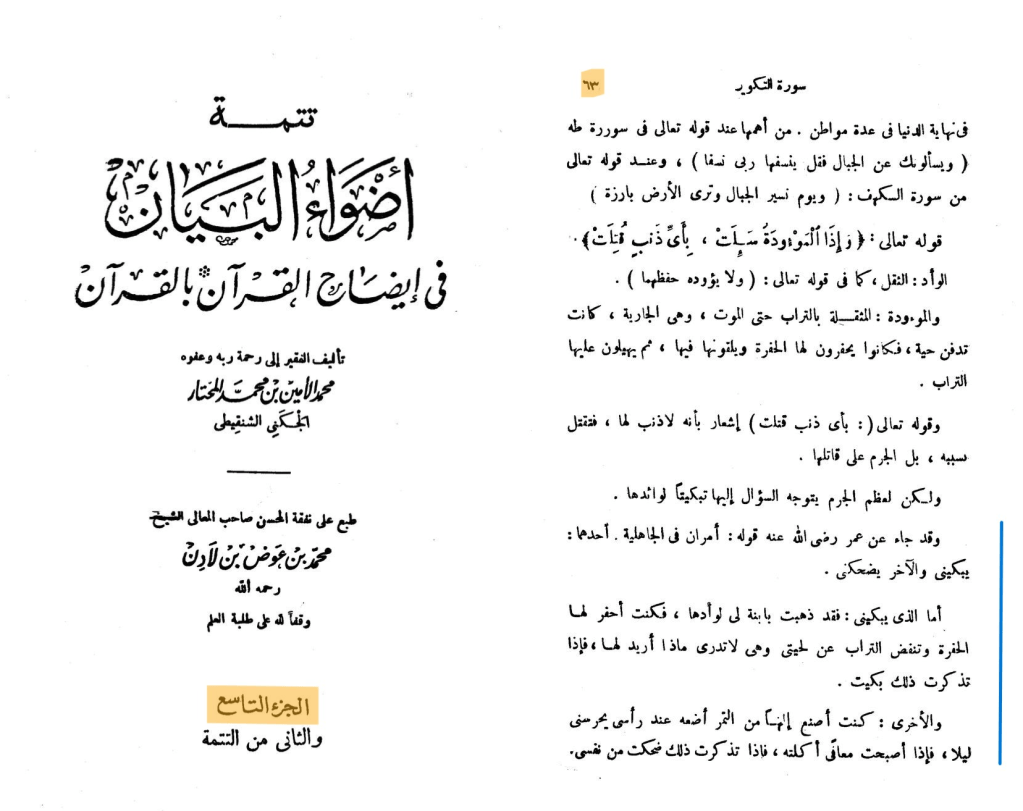 تتمة
أضواء البيان
في إيضاح القرآن بالقرآن
تأليف الفقير إلى رحمة ربه وعفوه
محمد الأمين بن محمد المختار
الجكني الشنقيطى
طبع على نفقة المحسن صاحب المعالى الشيخ
محمد بن عوض بن لادن
رحمه الله
وقفاً لله على طلبة العلم
الجزء التاسع
والثانى من التتمة
سورة التكوير
٦٣
فى نهاية الدنيا فى عدة مواطن . من أهمها عند قوله تعالى فى سوررة طه
( ويسألونك عن الجبال فقل ينسفها ربى نسفا ) ، وعند قوله تعالى
من سورة الكهف : ( ويوم نسير الجبال وترى الأرض بارزة )
قوله تعالى : ﴿ وَإِذَا ٱلْمَوْءُودَةُ سُئِلَتْ ، بِأَىِّ ذَنْبٍ قُتِلَتْ﴾ .
الوأد : الثقل ، كما فى قوله تعالى : ( ولا يؤوده حفظهما ) .
والموءودة : المثقلة بالتراب حتى الموت ، وهى الجارية ، كانت
تدفن حية ، فكانوا يحفرون لها الحفرة ويلقونها فيها ، ثم يهيلون عليها
التراب .
وقوله تعالى ( : بأى ذنب قتلت ) إشعار بأنه لاذنب لها ، فتقتل
بسببه ، بل الجرم على قاتلها .
ولكن لعظم الجرم يتوجه السؤال إليها تبكيتاً لوائدها .
وقد جاء عن عمر رضى الله عنه قوله : أمران فى الجاهلية . أحدهما :
يبكينى والآخر يضحكنى .
أما الذى يبكينى : فقد ذهبت بابنة لى لوأدها ، فكنت أحفر لها
الحفرة وتنفض التراب عن لحيتى وهى لاتدرى ماذا أريد لها ، فإذا
تذكرت ذلك بكيت .
والأخرى : كنت أصنع إلهاً من التمر أضعه عند رأسى يحرسنى
ليلا ، فإذا أصبحت معافى أكلته ، فإذا تذكرت ذلك ضحكت من نفسى.